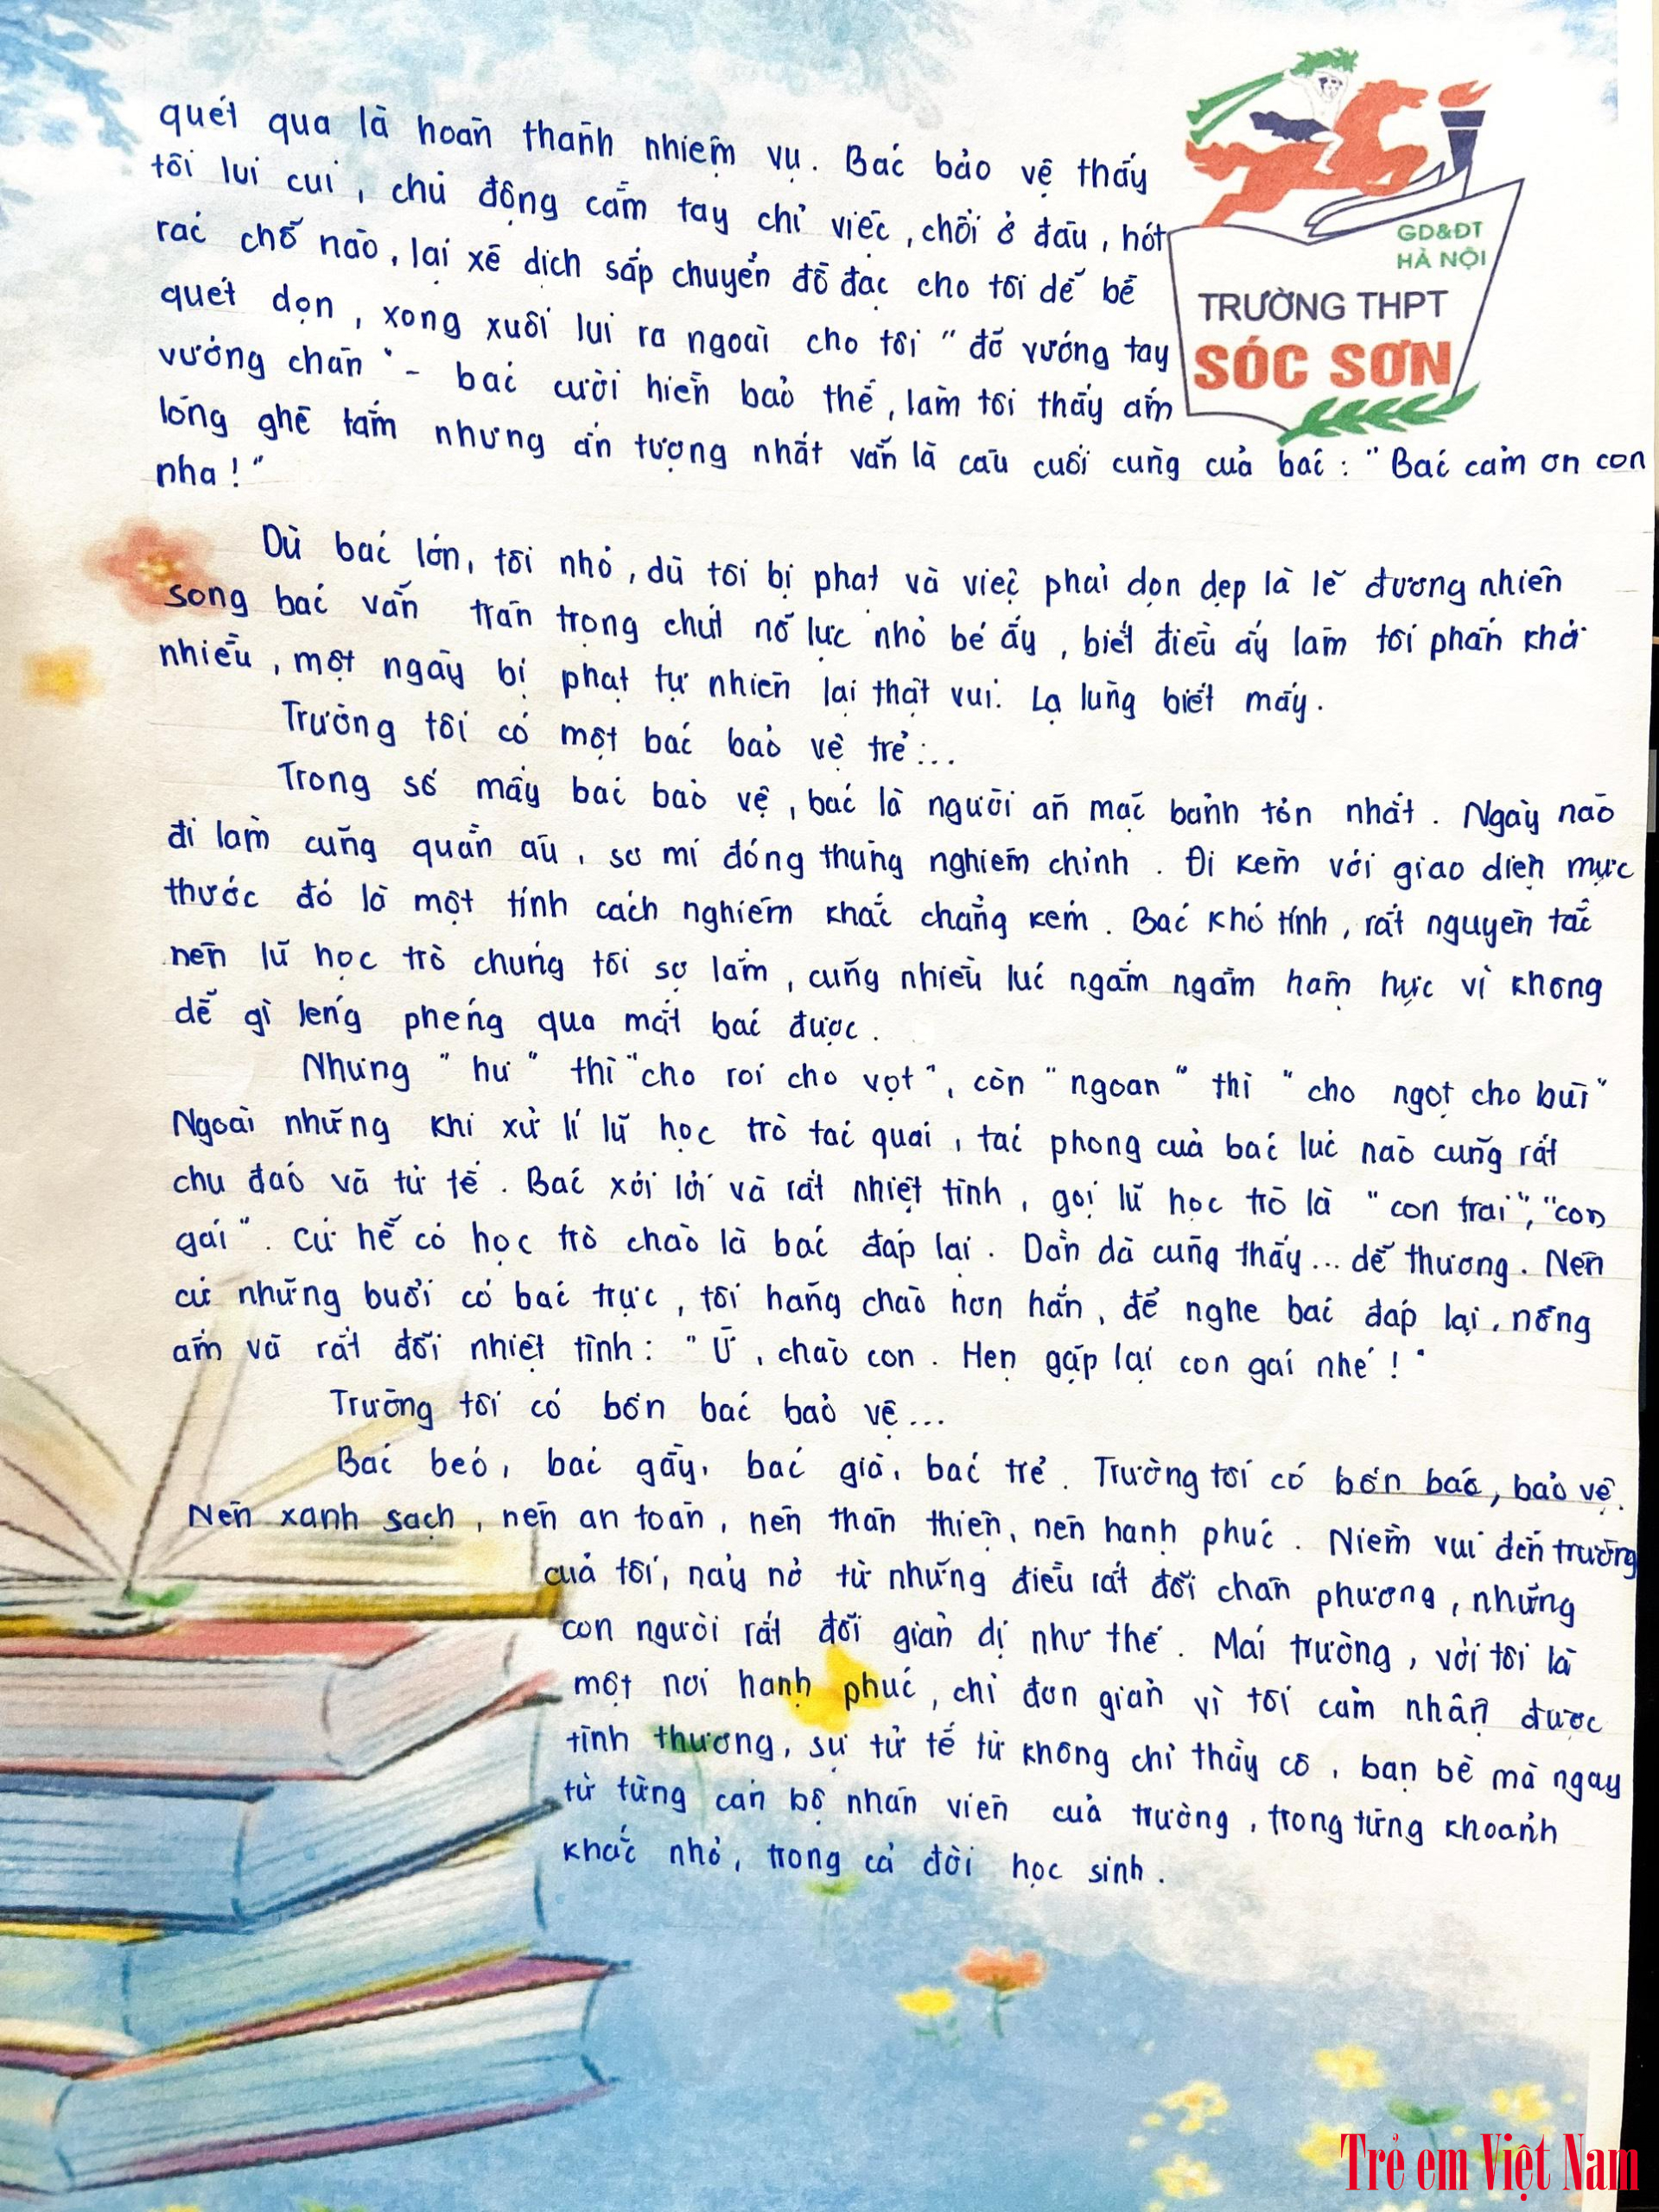 quét qua là hoàn thành nhiệm vụ. Bác bảo vệ thấy
tôi lui cui, chủ động cầm tay chỉ việc, chổi ở đâu, hót
rác chỗ nào, lại xê dịch sắp chuyển đồ đạc cho tôi dễ bề
quét dọn, xong xuôi lui ra ngoài cho tôi "đỡ vướng tay
vướng chân" - bác cười hiền bảo thế, làm tôi thấy ấm
lòng ghê lắm nhưng ấn tượng nhất vẫn là câu cuối cùng của bác: "Bác cảm ơn con
nha!"
Dù bác lớn, tôi nhỏ, dù tôi bị phạt và việc phải dọn dẹp là lẽ đương nhiên
song bác vẫn trân trọng chút nỗ lực nhỏ bé ấy, biết điều ấy làm tôi phấn khởi
nhiều, một ngày bị phạt tự nhiên lại thật vui. Lạ lùng biết mấy.
Trường tôi có một bác bảo vệ trẻ...
Trong số mấy bác bảo vệ, bác là người ăn mặc bảnh tỏn nhất. Ngày nào
đi làm cũng quần âu, sơ mi đóng thùng nghiêm chỉnh. Đi kèm với giao diện mực
thước đó là một tính cách nghiêm khắc chẳng kém. Bác khó tính, rất nguyên tắc
nên lũ học trò chúng tôi sợ lắm, cũng nhiều lúc ngấm ngầm hậm hực vì không
dễ gì léng phéng qua mắt bác được.
Nhưng "hư" thì "cho roi cho vọt", còn "ngoan" thì "cho ngọt cho bùi"
Ngoài những khi xử lí lũ học trò tai quái, tác phong của bác lúc nào cũng rất
chu đáo và tử tế. Bác xởi lởi và rất nhiệt tình, gọi lũ học trò là "con trai", "con
gái". Cứ hễ có học trò chào là bác đáp lại. Dần dà cũng thấy... dễ thương. Nên
cứ những buổi có bác trực, tôi hăng chào hơn hẳn, để nghe bác đáp lại, nồng
ấm và rất đỗi nhiệt tình: "Ừ, chào con. Hẹn gặp lại con gái nhé!"
Trường tôi có bốn bác bảo vệ...
Bác béo, bác gầy, bác già, bác trẻ. Trường tôi có bốn bác, bảo vệ.
Nên xanh sạch, nên an toàn, nên thân thiện, nên hạnh phúc. Niềm vui đến trường
của tôi, nảy nở từ những điều rất đỗi chân phương, những
con người rất đỗi giản dị như thế. Mái trường, với tôi là
một nơi hạnh phúc, chỉ đơn giản vì tôi cảm nhận được
tình thương, sự tử tế từ không chỉ thầy cô, bạn bè mà ngay
từ từng cán bộ nhân viên của trường, trong từng khoảnh
khắc nhỏ, trong cả đời học sinh.
GD&ĐT
HÀ NỘI
TRƯỜNG THPT
SÓC SƠN
Trẻ em Việt Nam